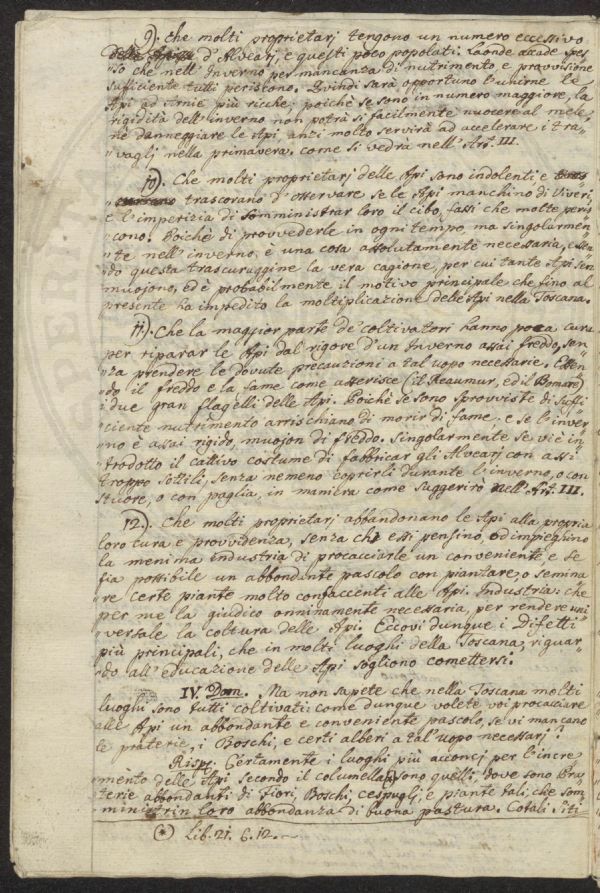 9). Che molti proprietarj tengono un numero eccessivo
d'Alvearj, e questi poco popolati. Laonde accade spes-
"so che nell'Inverno per mancanza di nutrimento e provvisione
sufficiente tutti periscono. Quindi sarà opportuno l'unirne le
Api ad Arnie più ricche; poichè se sono in numero maggiore, la
rigidità dell'inverno non potrà sì facilmente nuocere al mele,
ne danneggiare le Api, anzi molto servirà ad accelerare i tra-
"vaglj nella primavera. come si vedrà nell'Art. III.
10). Che molti proprietarj delle Api sono indolenti e
trascorano d'osservare se le Api manchino di Viveri,
e l'imperizia di somministrar loro il cibo, fassi che molte peris-
"cono. Poichè di provvederle in ogni tempo ma singolarmen-
"te nell'inverno, è una cosa assolutamente necessaria, essen-
"do questa trascuraggine la vera cagione, per cui tante Api sen
muojono, ed è probabilmente il motivo principale che fino al
presente ha impedito la moltiplicazione delle Api nella Toscana.
11). Che la maggior parte de' coltivatori hanno poca cura
per riparar le Api dal rigore d'un Inverno assai freddo, sen-
"za prendere le dovute precauzioni a tal uopo necessarie. Essen-
"do il freddo e la fame come asserisce (il Reaumur, ed il Bomare)
i due gran flagelli delle Api. Poichè se sono sprovviste di suffi-
ciente nutrimento arrischiano di morir di fame; e se l'inver-
"no è assai rigido, muojon di freddo. Singolarmente se vi è in-
trodotto il cattivo costume di fabbricar gli Alvearj con assi
troppo sottili, senza nemeno coprirli durante l'inverno, o con
stuore, o con paglia, in maniera come suggerirò nell'Art. III.
12). Che molti proprietarj abbandonano le Api alla propria
loro cura e provvidenza, senza che essi pensino, od impieghino
la menima industria di procacciarle un conveniente, e se
fia possibile un abbondante pascolo con piantare, o semina-
"re certe piante molto confaccenti alle Api. Industria: che
per me la giudico onninamente necessaria, per rendere uni-
"versale la coltura delle Api. Eccovi dunque i Difetti
più principali, che in molti luoghi della Toscana, riguar-
"do all'educazione delle Api sogliono comettersi.
IV. Dom. Ma non sapete che nella Toscana molti
luoghi sono tutti coltivati: come dunque volete voi procacciare
alle Api un abbondante e conveniente pascolo, se vi mancano
le praterie, i Boschi, e certi alberi a tal'uopo necessarj?
Risp: Certamente i luoghi più acconcj per l'incre-
mento delle Api secondo il columella (*) sono quelli, dove sono Pra-
"terie abbondanti di Fiori, Boschi, cespuglj, e piante tali, che som-
"ministrin loro abbondanza di buona pastura. Cotali siti-
(*) Lib. 21. 6. 12.